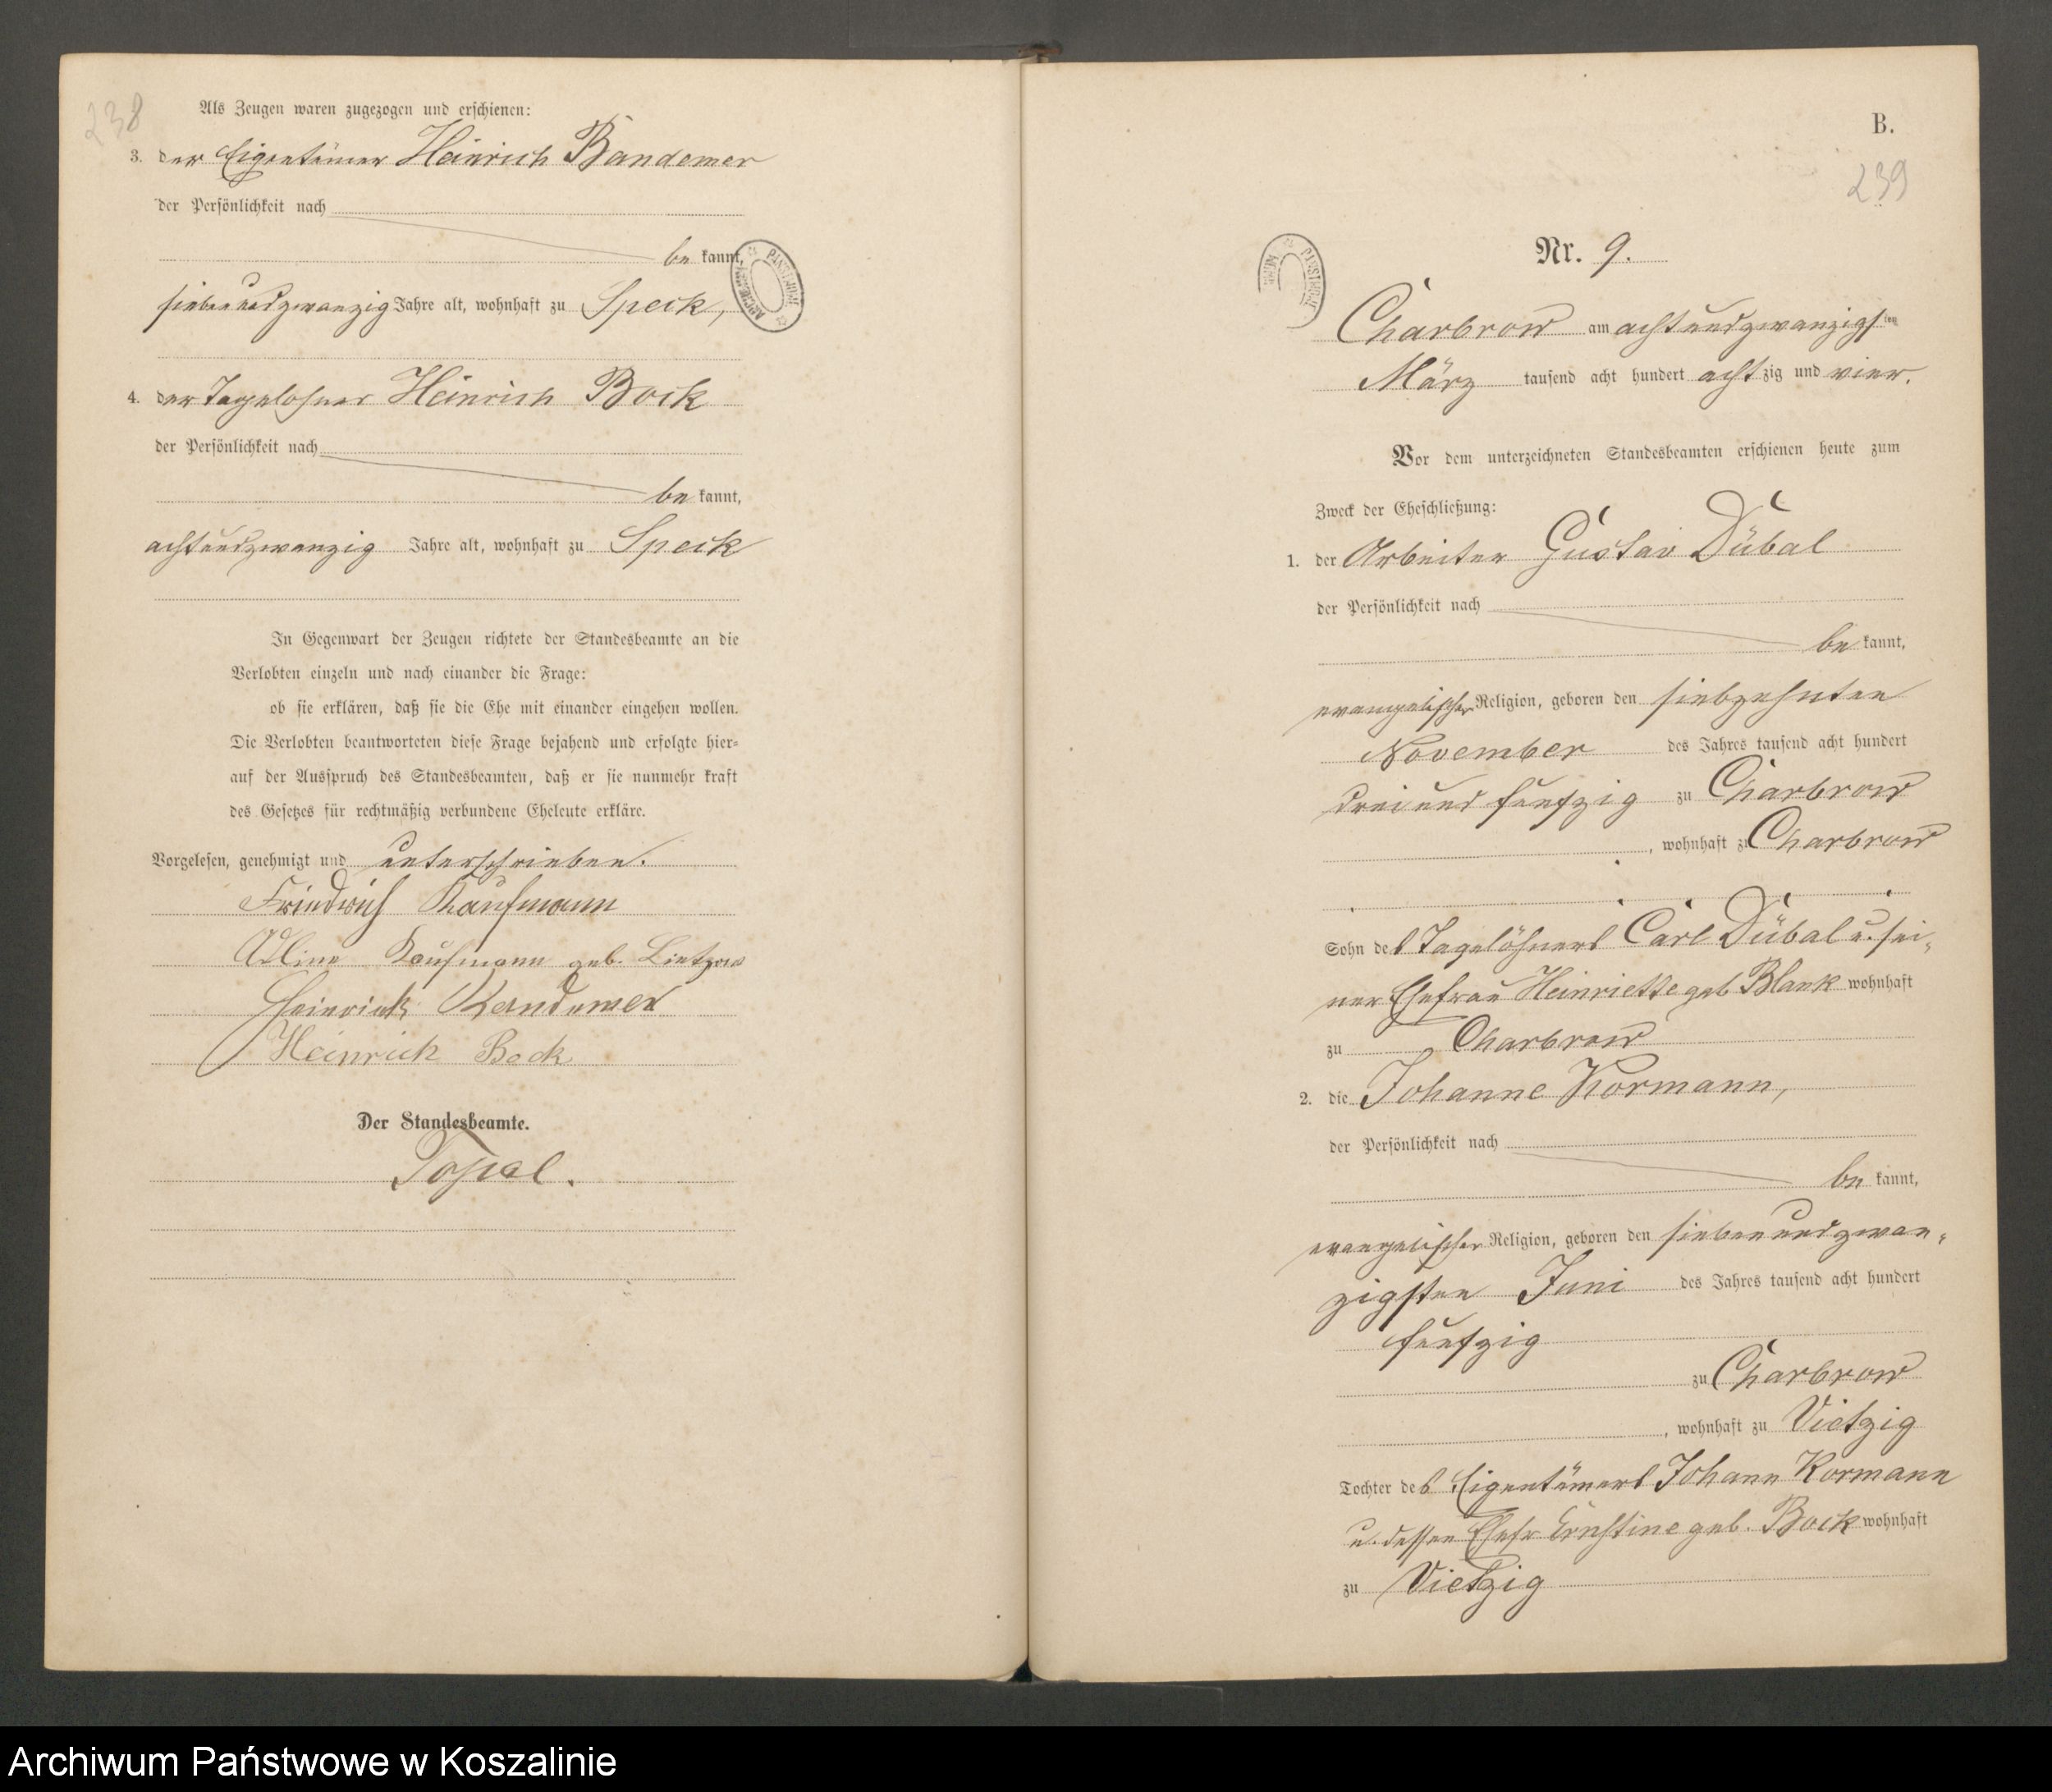 238
Als Zeugen waren zugezogen und erschienen:
3. der Eigentümer Heinrich Bandemer
der Persönlichkeit nach
be kannt,
siebenundzwanzig Jahre alt, wohnhaft zu Speck,
4. der Tagelöhner Heinrich Bock
der Persönlichkeit nach
be kannt,
achtundzwanzig Jahre alt, wohnhaft zu Speck
In Gegenwart der Zeugen richtete der Standesbeamte an die
Verlobten einzeln und nach einander die Frage:
ob sie erklären, daß sie die Ehe mit einander eingehen wollen.
Die Verlobten beantworteten diese Frage bejahend und erfolgte hier-
auf der Ausspruch des Standesbeamten, daß er sie nunmehr kraft
des Gesetzes für rechtmäßig verbundene Eheleute erkläre.
Vorgelesen, genehmigt und unterschrieben.
Friedrich Kaufmann
Kaufmann geb. Lietzow
Heinrich Bandemer
Heinrich Bock
Der Standesbeamte.
B.
239
Nr. 9.
Charbrow am achtundzwanzigsten
März tausend acht hundert achtzig und vier.
Vor dem unterzeichneten Standesbeamten erschienen heute zum
Zweck der Eheschließung:
1. der Arbeiter Gustav Dübal
der Persönlichkeit nach
be kannt,
evangelischer Religion, geboren den siebzehnten
November des Jahres tausend acht hundert
dreiund funfzig zu Charbrow
, wohnhaft zu Charbrow
Sohn des Tagelöhners Carl Dübal u. sei-
ner Ehefrau Heinriette geb Blank wohnhaft
zu Charbrow
2. die Johanne Kormann,
der Persönlichkeit nach
be kannt,
evangelischer Religion, geboren den siebenundzwan-
zigsten Juni des Jahres tausend acht hundert
funfzig
zu Charbrow
, wohnhaft zu Vietzig
Tochter des Eigentümers Johann Kormann
u. dessen Ehefr Ernstine geb. Bock wohnhaft
zu Vietzig
Archiwum Państwowe w Koszalinie